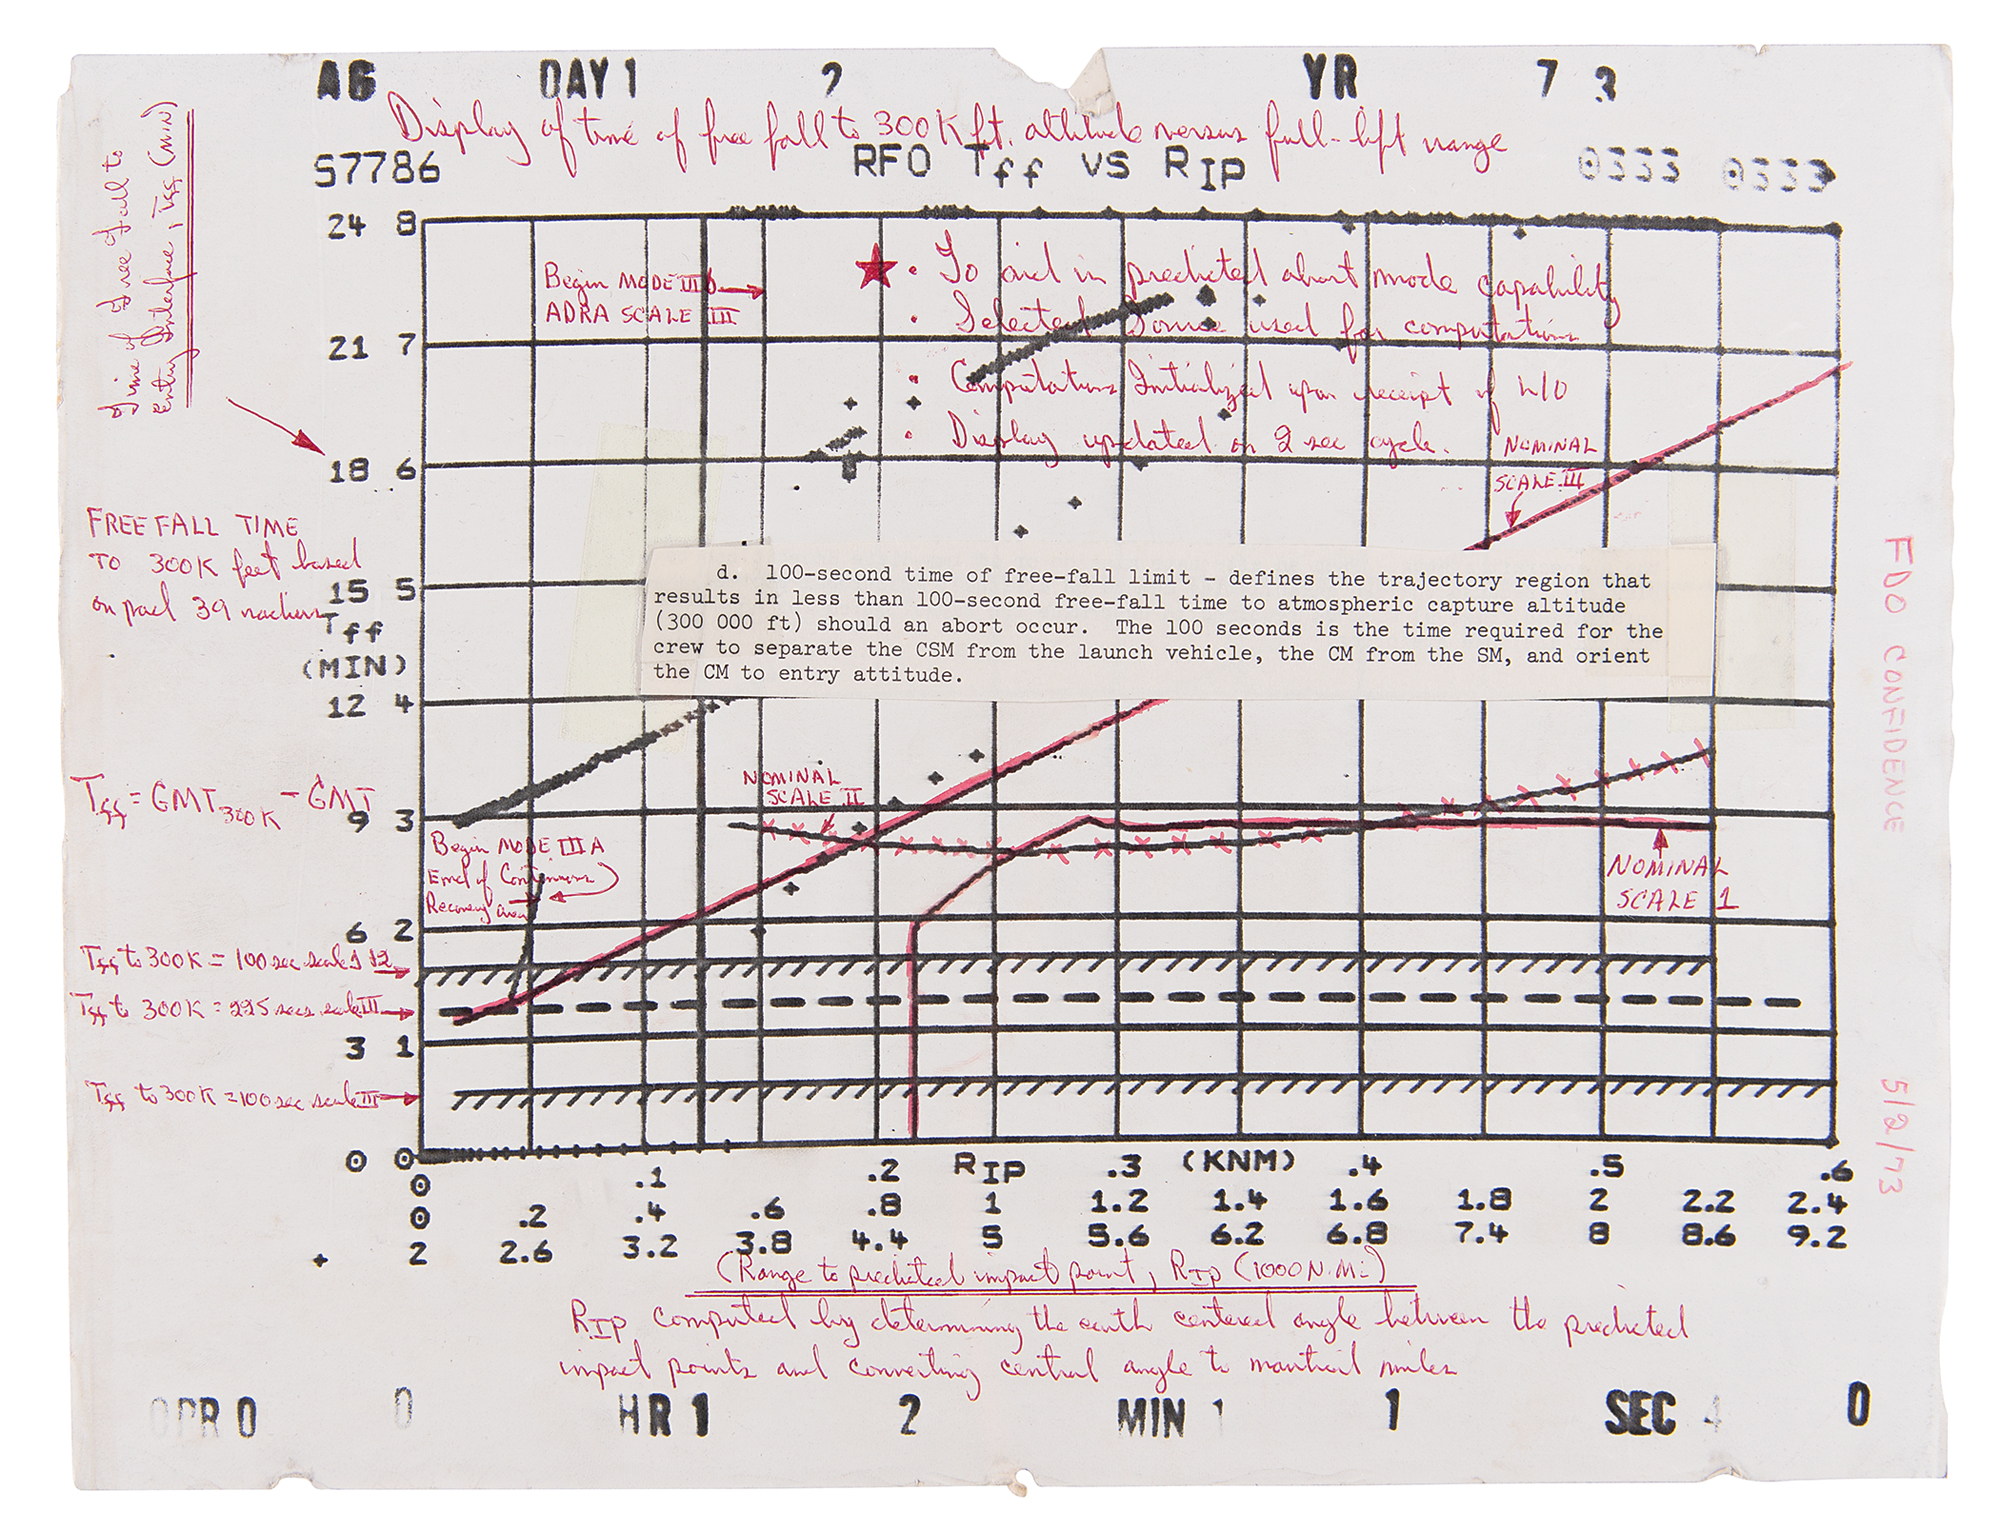 AG DAY 1 2 YR 7 3
Display of time of free fall to 300K ft. altitude versus full-lift range
S7786 RFO Tff VS RIP 0333 0333
Time of free fall to
Entry Interface, Tff (MIN)
24 8
Begin MODE III b
ADRA SCALE III
★ · To aid in predicted abort mode capability
· Selected Source used for computations
21 7
· Computations Initialized upon receipt of
· Display updated on 2 sec cycle.
NOMINAL
SCALE III
18 6
FREE FALL TIME
TO 300K feet based
on pad 39
15 5
Tff
(MIN)
d. 100-second time of free-fall limit - defines the trajectory region that
results in less than 100-second free-fall time to atmospheric capture altitude
(300 000 ft) should an abort occur. The 100 seconds is the time required for the
crew to separate the CSM from the launch vehicle, the CM from the SM, and orient
the CM to entry attitude.
FDO CONFIDENCE
12 4
NOMINAL
SCALE II
Tff = GMT300K - GMT
9 3
Begin MODE III A
End of Continuous
Recovery area
NOMINAL
SCALE 1
6 2
Tff to 300K = 100 sec scale 1 12
Tff to 300K = 225 secs scale III
3 1
Tff to 300K = 100 sec scale III
5/2/73
0 0
0 .1 .2 RIP .3 (KNM) .4 .5 .6
0 .2 .4 .6 .8 1 1.2 1.4 1.6 1.8 2 2.2 2.4
+ 2 2.6 3.2 3.8 4.4 5 5.6 6.2 6.8 7.4 8 8.6 9.2
(Range to predicted impact point, RIP (1000 N.Mi.)
RIP computed by determining the earth centered angle between the predicted
impact points and converting central angle to nautical miles
OPR 0 0 HR 1 2 MIN 1 1 SEC 4 0